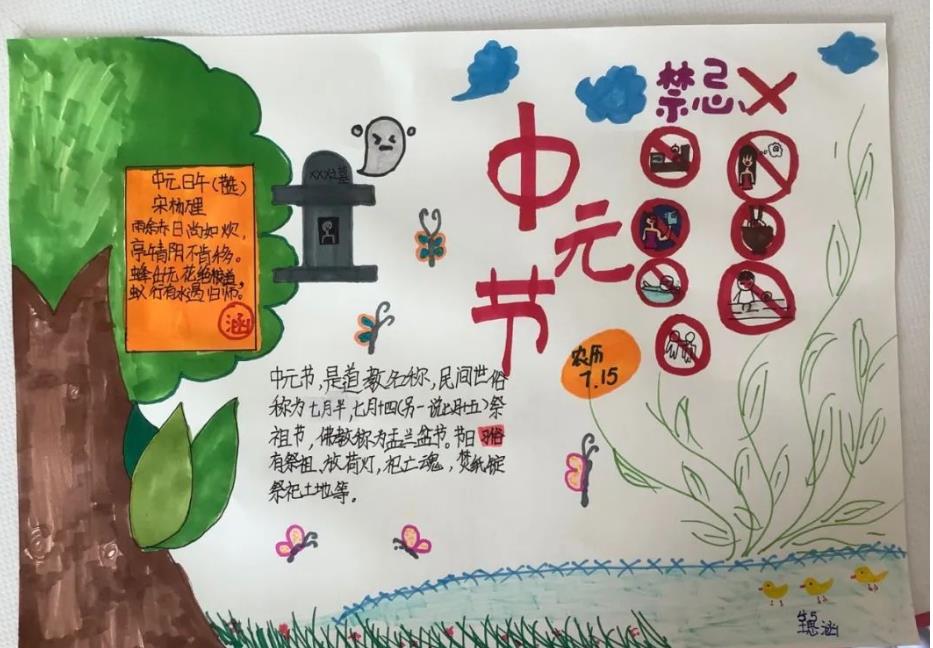 禁忌
中元节
中元日午(节选)
宋杨理
雨余赤日尚如炊,
亭午青阴不肯移。
蜂出无花绝粮道,
蚁行有水遏归师。
涵
XXX之墓
农历
7.15
中元节,是道教名称,民间世俗
称为七月半,七月十四(另一说七月十五)祭
祖节,佛教称为盂兰盆节。节日习俗
有祭祖、放荷灯,祀亡魂,焚纸锭
祭祀土地等。